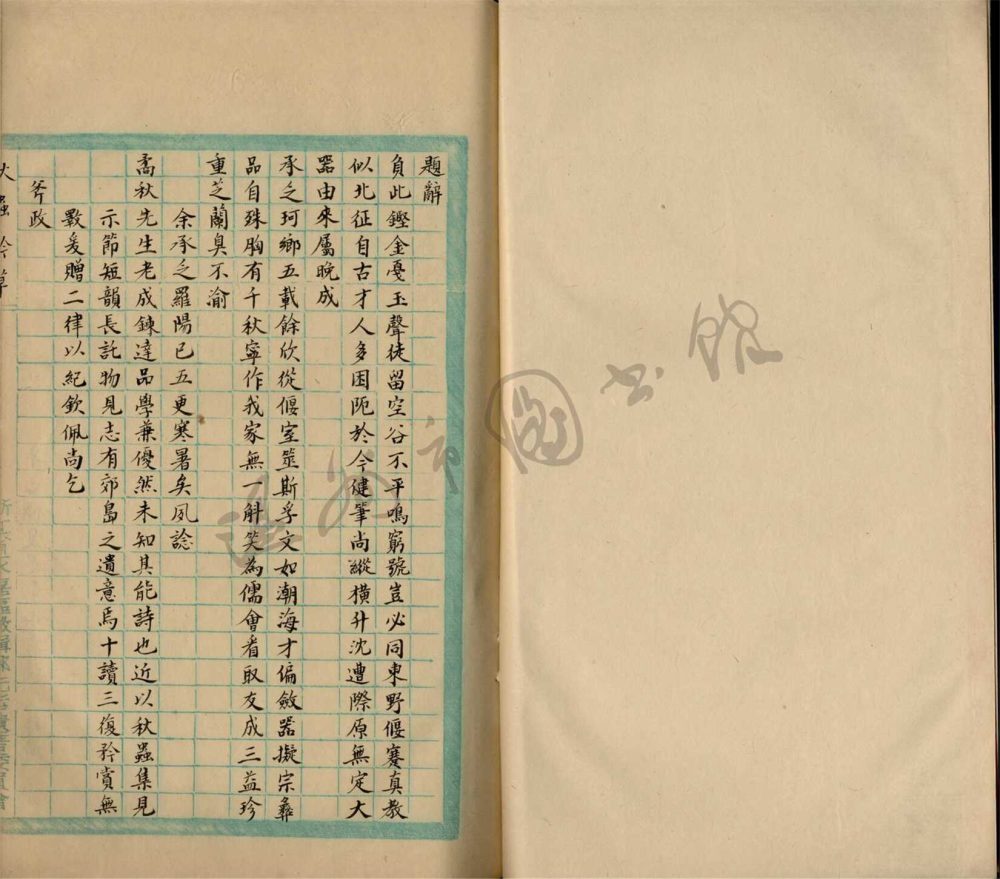 題辭
負此鏗金戞玉聲徒留空谷不平鳴窮號豈必同東野偃蹇真教
似北征自古才人多困阨於今健筆尚縱橫升沈遭際原無定大
器由來屬晚成
承乏珂鄉五載餘欣從偃室並斯孚文如潮海才偏斂器擬宗彝
品自殊胸有千秋寧作我家無一斛笑為儒會看取友成三益珍
重芝蘭臭不渝
余承乏羅陽已五更寒暑矣夙諗
矞秋先生老成鍊達品學兼優然未知其能詩也近以秋蟲集見
示節短韻長託物見志有郊島之遺意焉十讀三復矜賞無
斁爰贈二律以紀欽佩尚乞
斧政
蟲吟草
圖書館